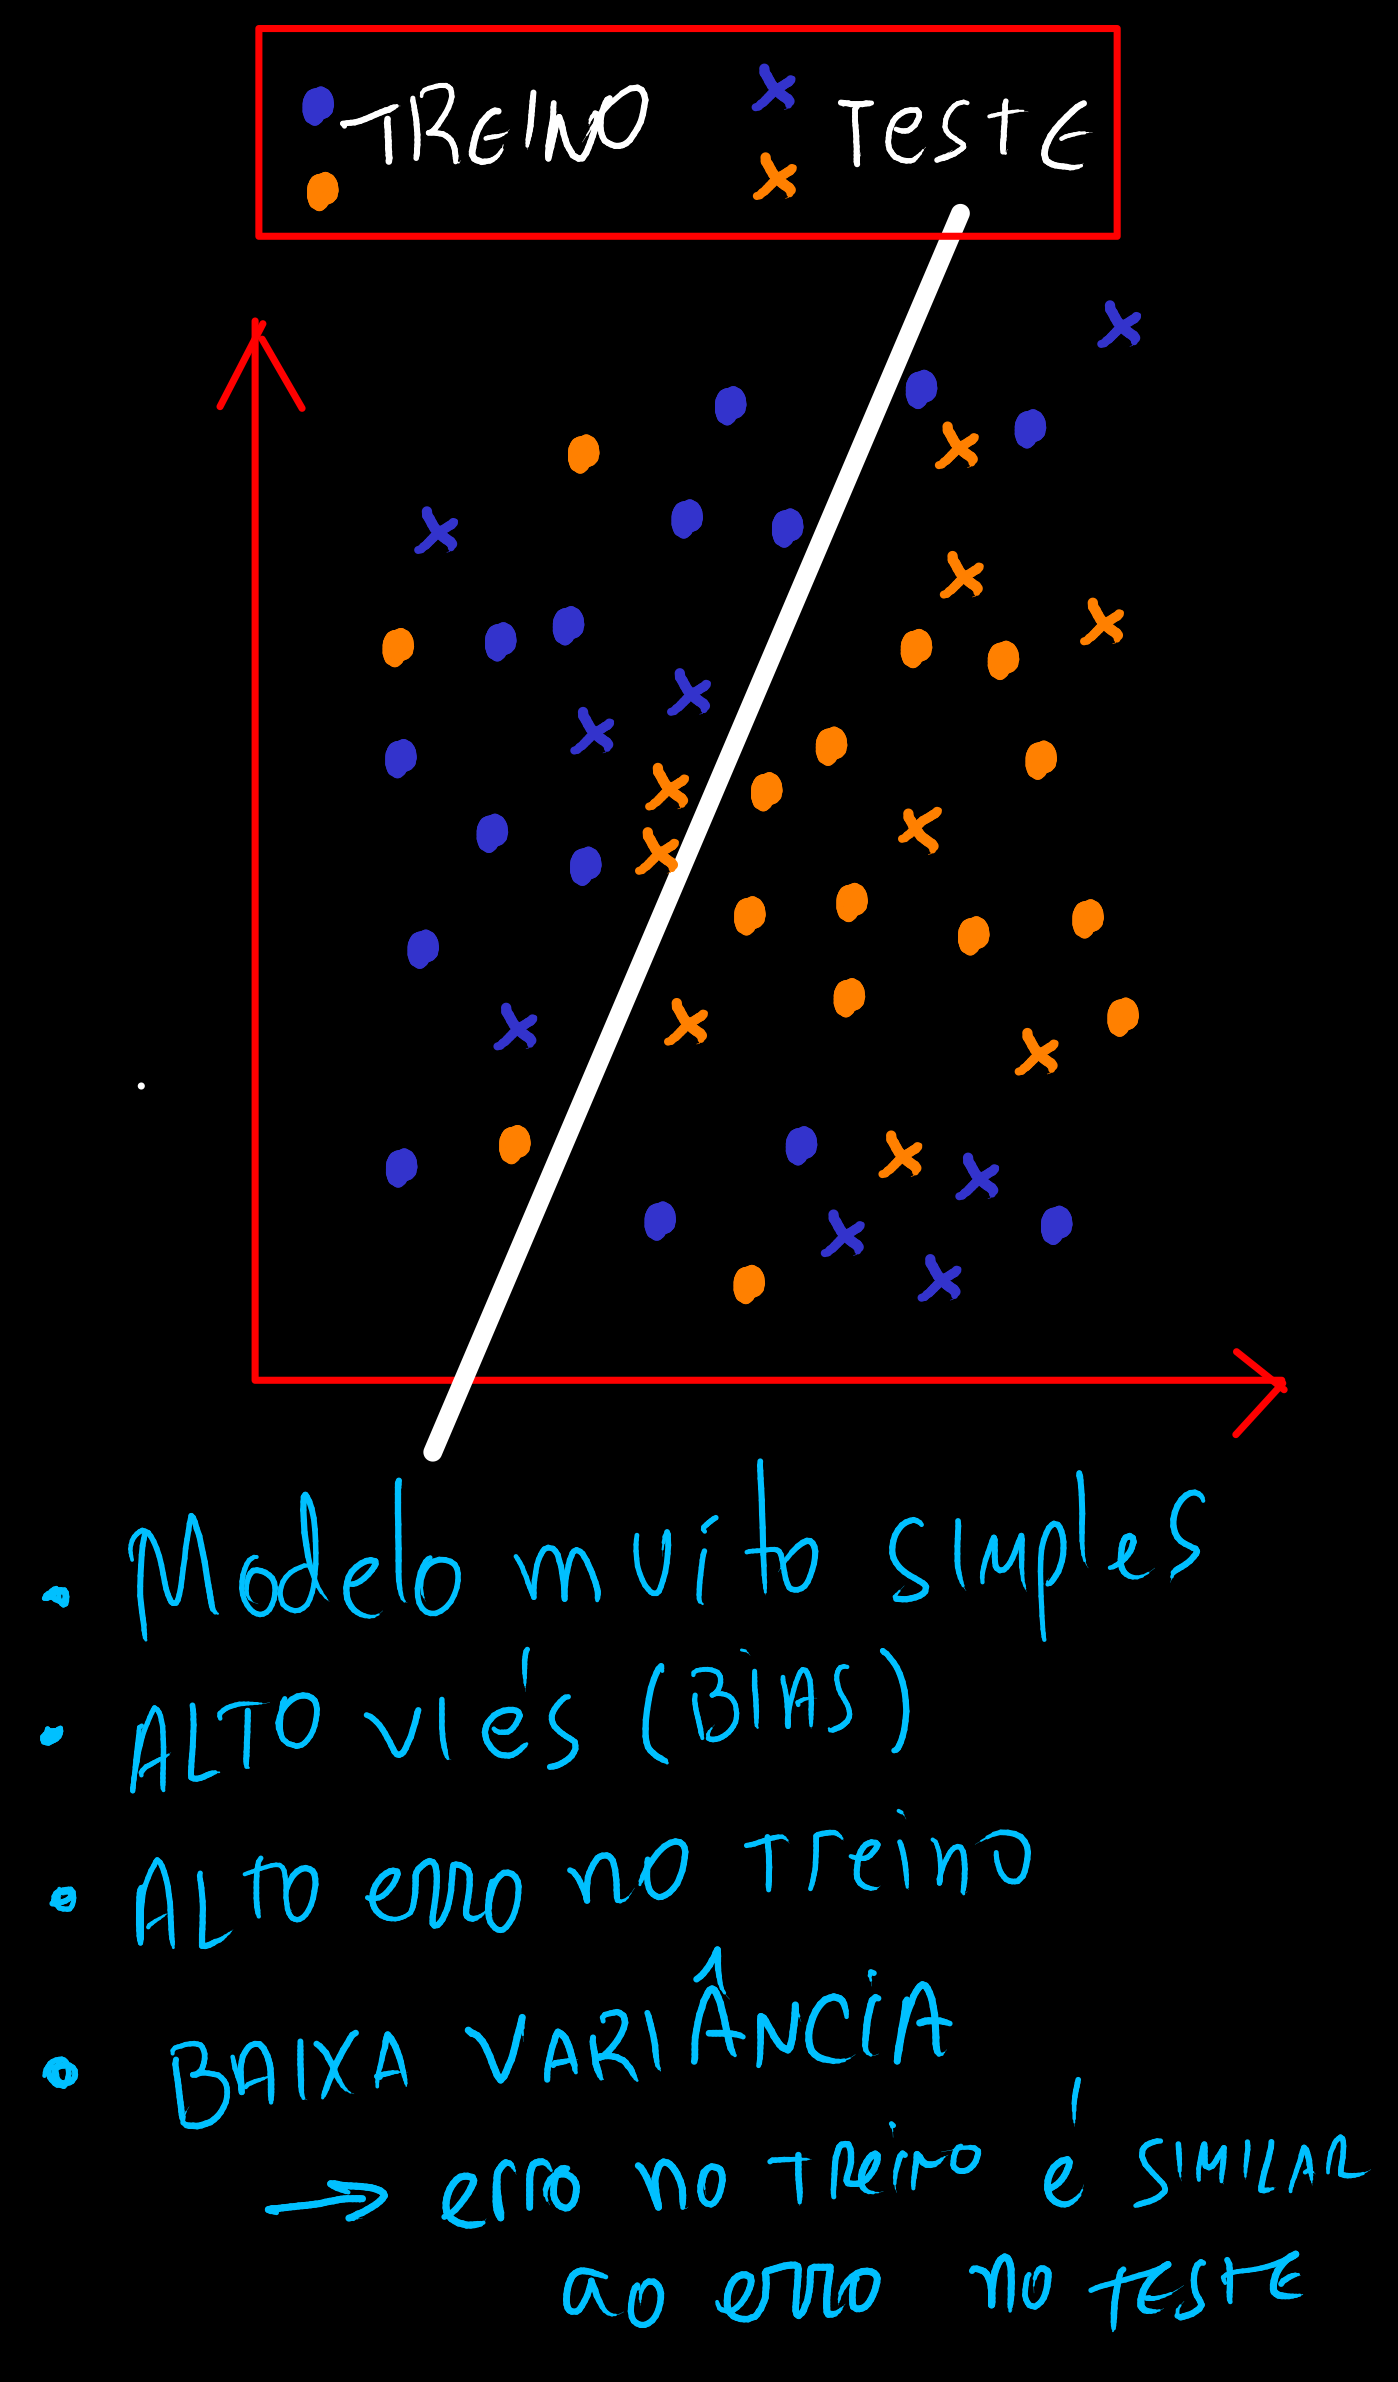 TREINO TESTE
• Modelo muito simples
• ALTO viés (BiAS)
• ALTO erro no Treino
• BAIXA VARIÂNCiA
→ erro no Treino é SIMILAR
ao erro no TESTE